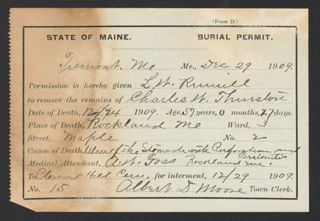 (Form D.)
STATE OF MAINE. BURIAL PERMIT.
Tremont, Me Me. Dec 29 1909.
Permission is hereby given L. W. Rumill
to remove the remains of Charles W. Thurston
Date of Death, 12/24 1909. Age 59 years, 0 months, 27 days.
Place of Death, Rockland Me Ward, 3
Street, Maple No. 2
Cause of Death, Ulcer of the Stomach with Perforation and Peritonitis
Medical Attendant, Foss Rockland Me.
To Hill Cem. for interment, 12/29 1909.
No. 15 Albert D. Moore Town Clerk.